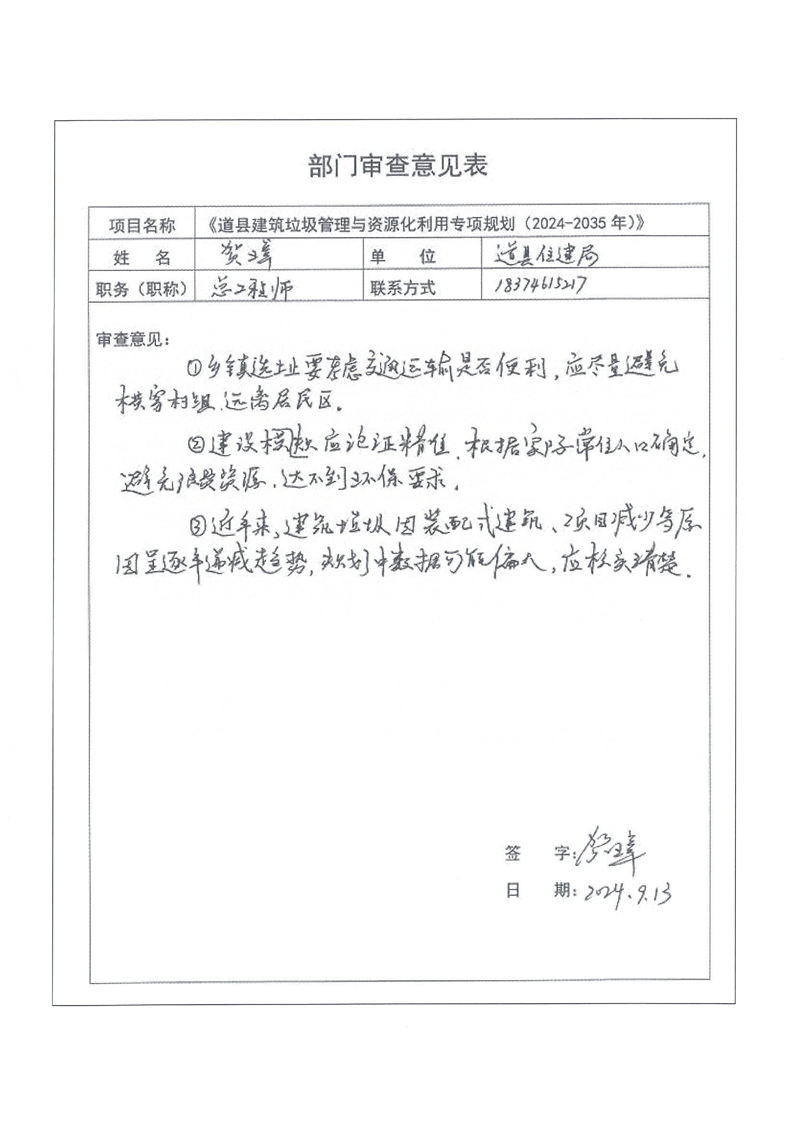 部门审查意见表
项目名称 《道县建筑垃圾管理与资源化利用专项规划（2024-2035 年）》
姓 名 贺璋 单 位 道县住建局
职务（职称） 总工程师 联系方式 18374615217
审查意见：
①乡镇选址要考虑交通运输是否便利，应尽量避免
横穿村组，远离居民区。
②建设规模应论证精准，根据家户常住人口确定，
避免浪费资源，达不到环保要求。
③近年来，建筑垃圾因装配式建筑、项目减少等原
因呈逐年递减趋势，规划中数据可能偏大，应核实清楚。
签 字：贺璋
日 期：2024.9.13